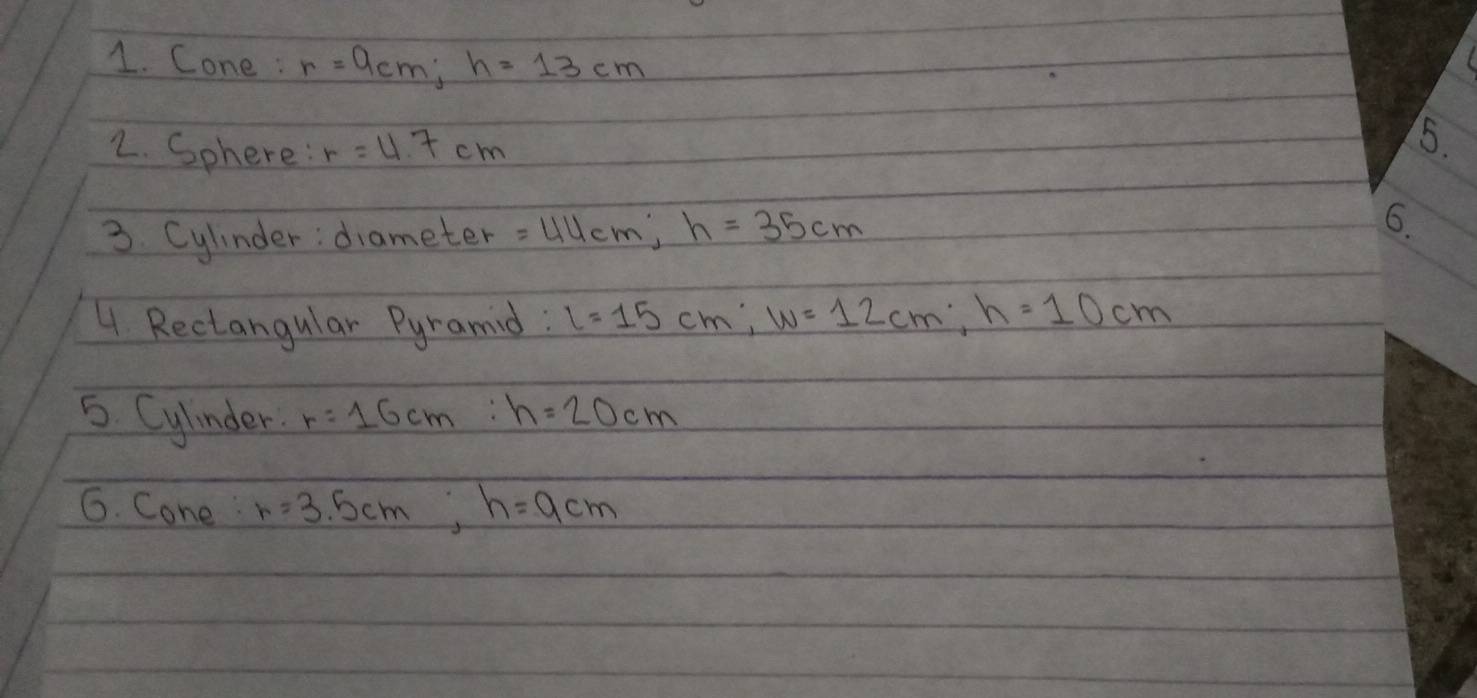 1. Cone : r = 9cm; h = 13 cm
2. Sphere : r = 4.7 cm
3. Cylinder : diameter = 44cm; h = 35cm
4. Rectangular Pyramid : l = 15 cm ; w = 12cm ; h = 10cm
5. Cylinder : r = 16cm : h = 20cm
6. Cone : r = 3.5cm ; h = 9cm
5.
6.